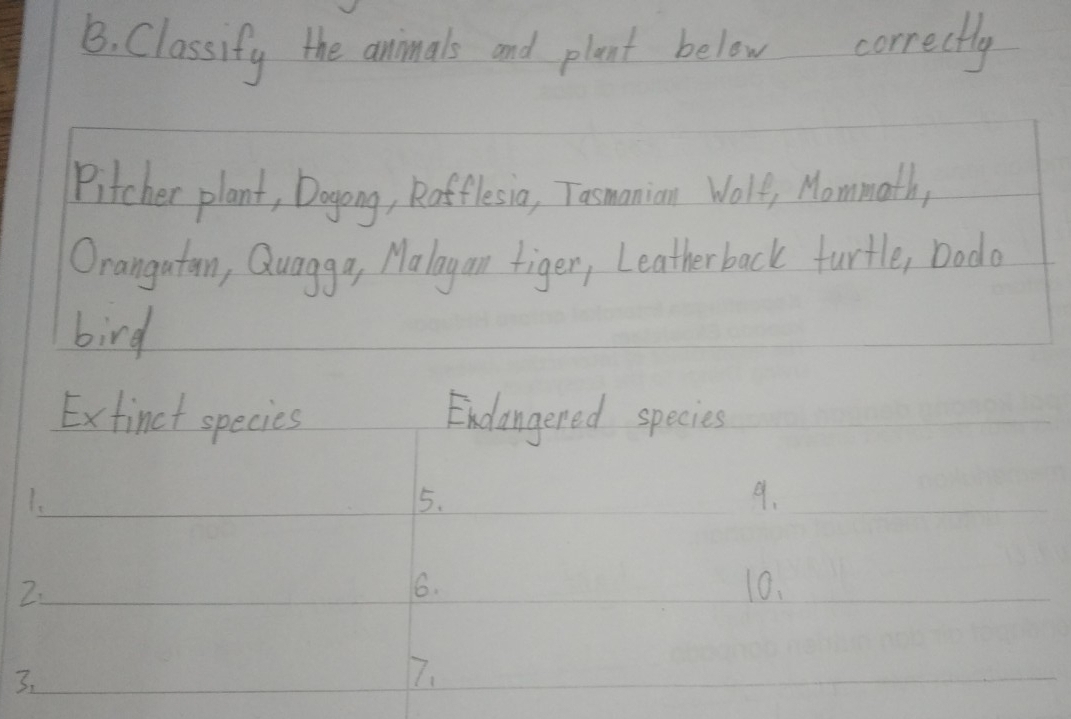 B. Classify the animals and plant below correctly
Pitcher plant, Dogong, Rafflesia, Tasmanian Wolf, Mommoth,
Orangutan, Quagga, Malayan tiger, Leatherback turtle, Dodo
bird
Extinct species Endangered species
1. 5. 9.
2. 6. 10.
3. 7.